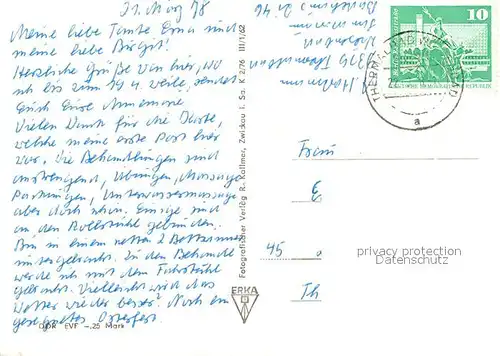 31. März 78
Meine liebe Tante Erna und
meine liebe Birgit!
Herzliche Grüße von hier, wo
ich bis zum 19.4. weile, sendet
Euch Eure Annemarie.
Vielen Dank für die Karte,
welche meine erste Post hier
war. Die Behandlungen sind
anstrengend, Übungen, Massage
Packungen, Unterwassermassage
aber doch schön. Einige sind
an den Rollstuhl gebunden.
Bin in einem netten 2 Bettzimmer
untergebracht. Zu den Behandl.
werde ich mit dem Fahrstuhl
gebracht. Vielleicht wird das
Wetter wieder besser? Noch ein
gesegnetes Osterfest
DDR EVP -.25 Mark
Fotografischer Verlag R. Kallmer, Zwickau i. Sa. K 2/76 III/1/62
ERKA
10
DEUTSCHE DEMOKRATISCHE REPUBLIK
THERMALBAD WIESENBAD
a
Frau
E
45 0
Th
privacy protection
Datenschutz